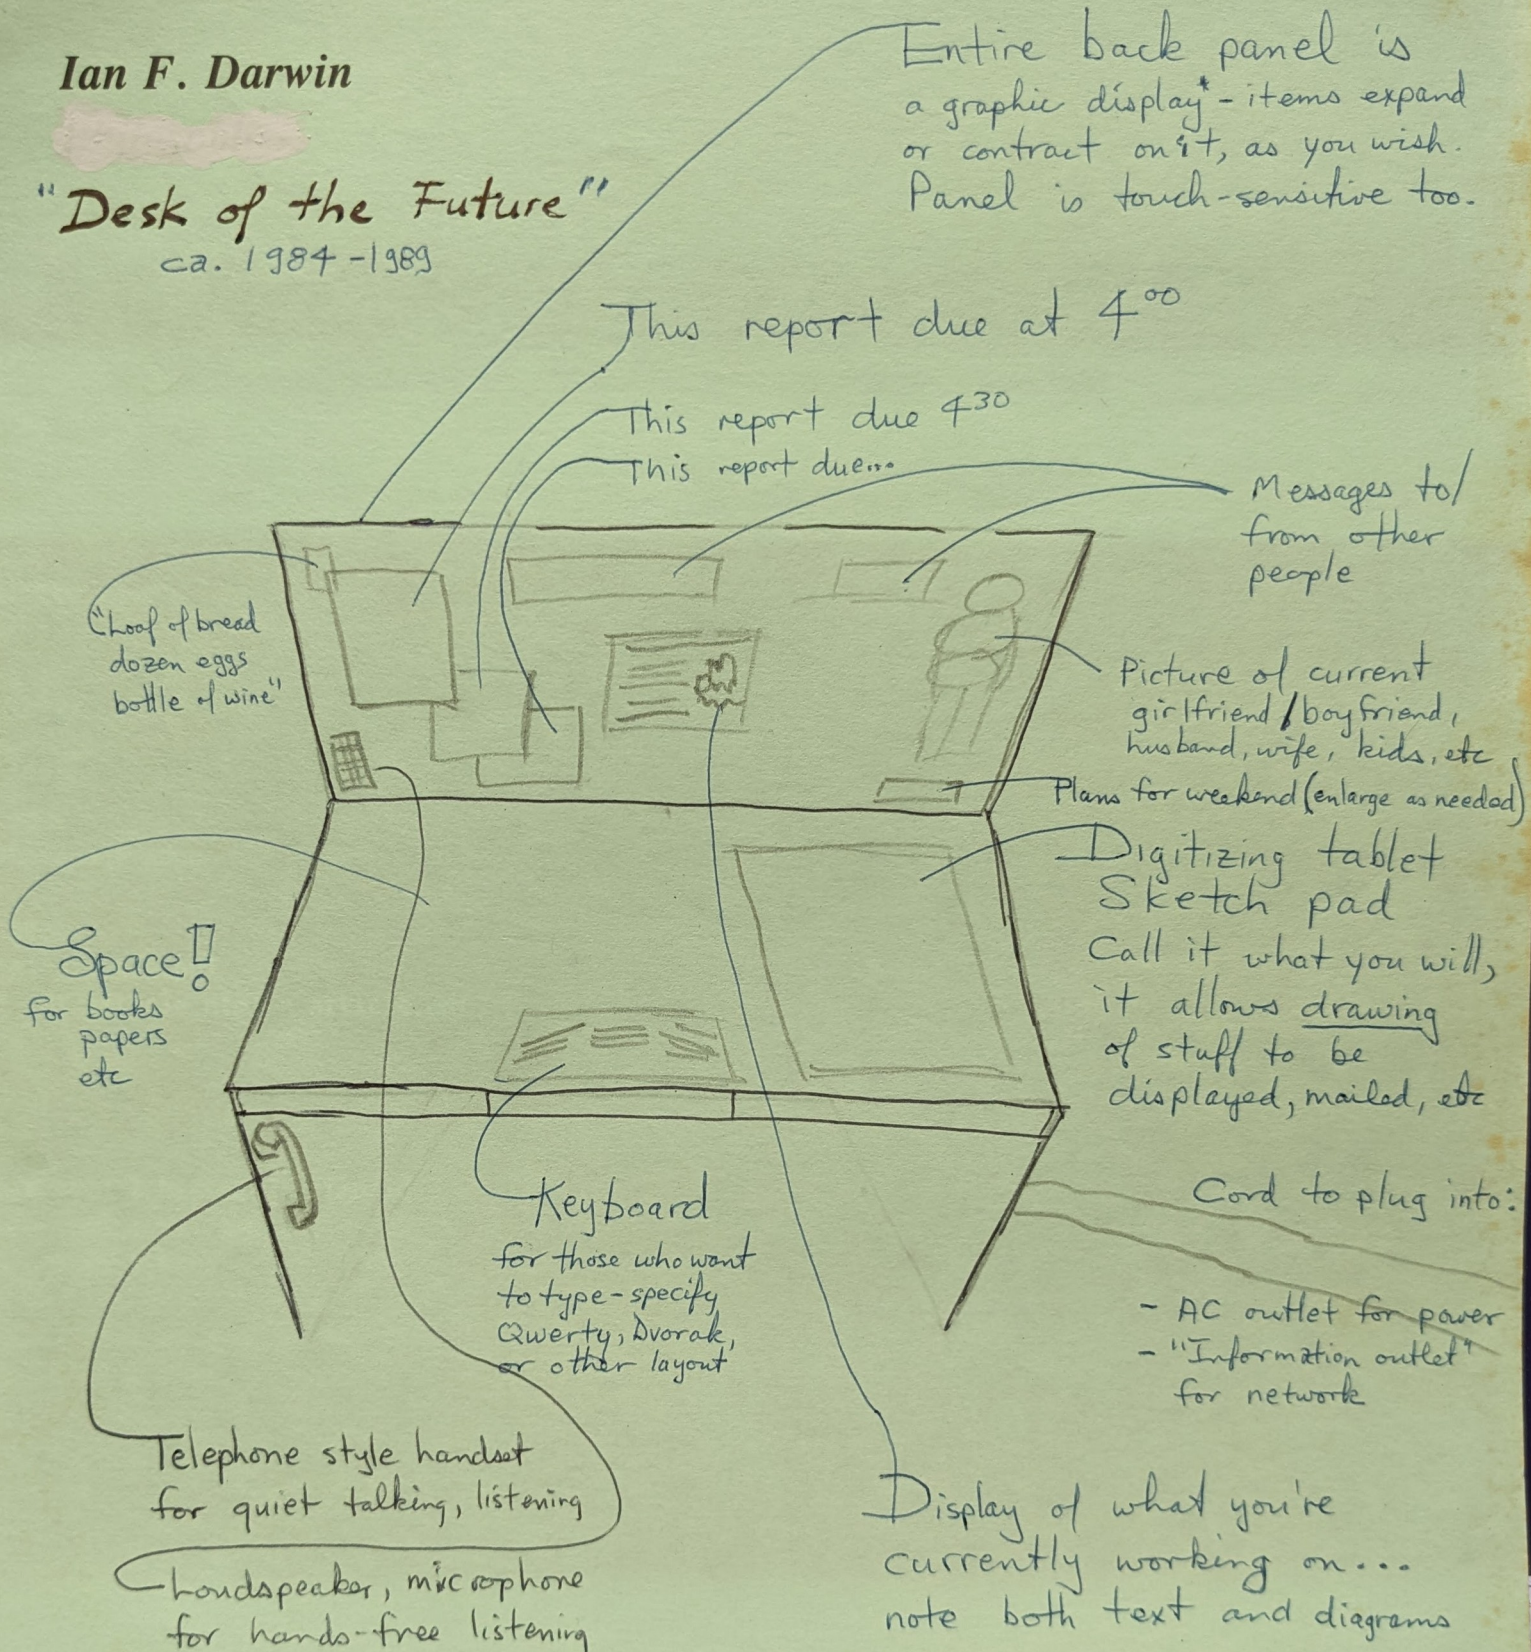 Ian F. Darwin
"Desk of the Future"
ca. 1984-1989
Entire back panel is
a graphic display* - items expand
or contract on it, as you wish.
Panel is touch-sensitive too.
This report due at 4⁰⁰
This report due 4³⁰
This report due...
Messages to/
from other
people
"Loaf of bread
dozen eggs
bottle of wine"
Picture of current
girlfriend/boyfriend,
husband, wife, kids, etc
Plans for weekend (enlarge as needed)
Digitizing tablet
Sketch pad
Call it what you will,
it allows drawing
of stuff to be
displayed, mailed, etc
Space!
for books
papers
etc
Cord to plug into:
- AC outlet for power
- "Information outlet"
for network
Keyboard
for those who want
to type - specify
Qwerty, Dvorak,
or other layout
Telephone style handset
for quiet talking, listening
Loudspeaker, microphone
for hands-free listening
Display of what you're
currently working on...
note both text and diagrams